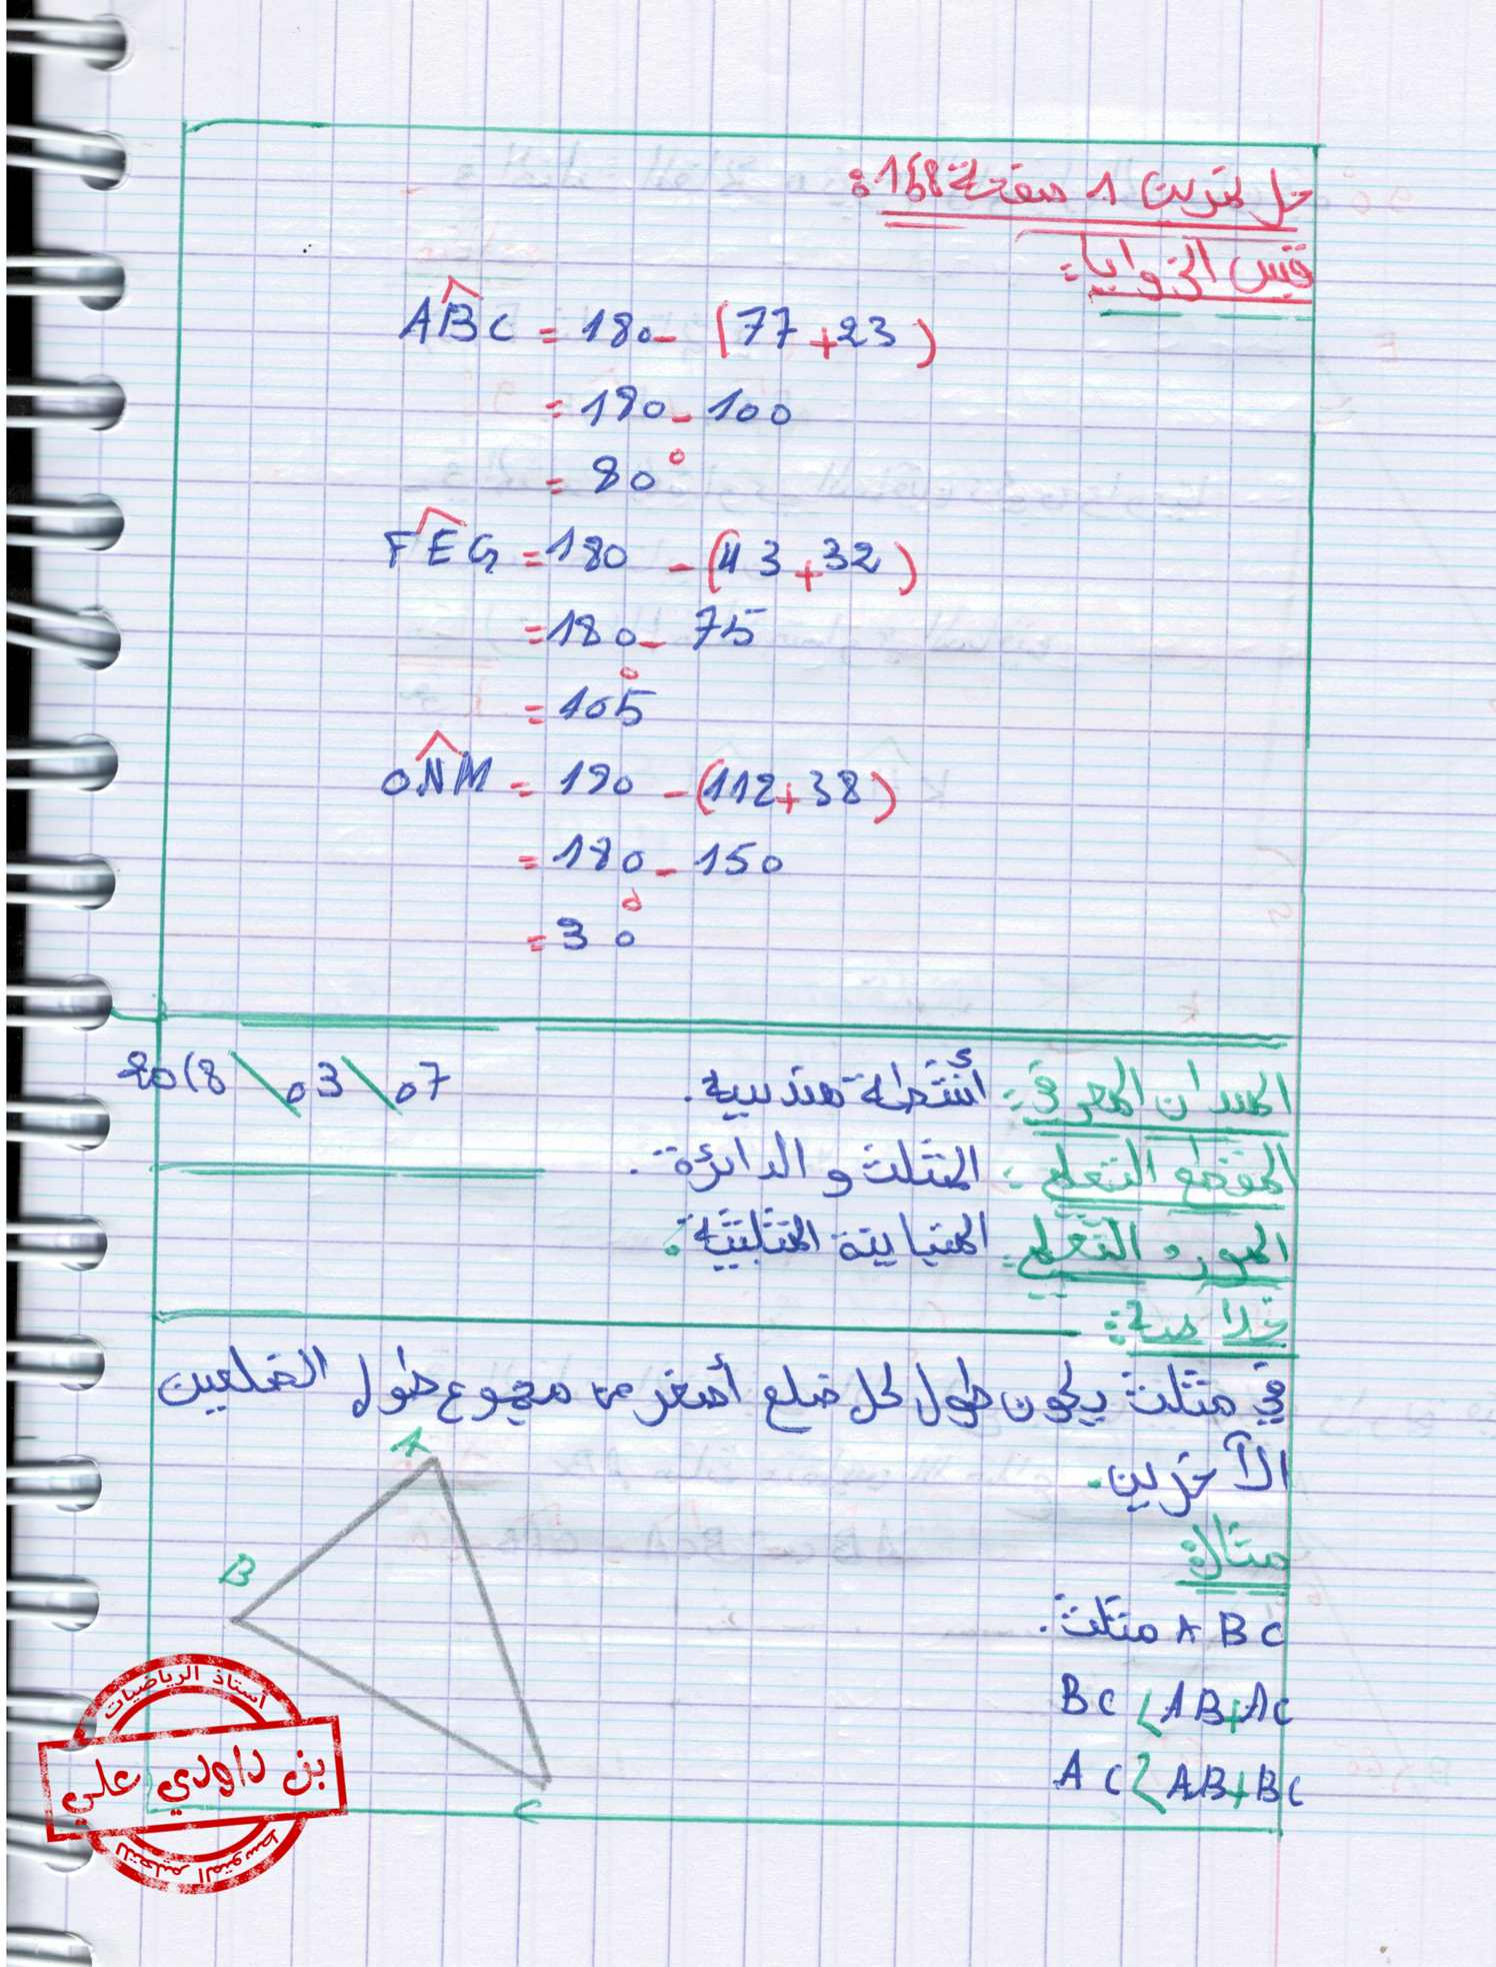 حل تمرين 1 صفحة 158:
قيس الزوايا:
ABC = 180 - (77+23)
= 180 - 100
= 80°
FEG = 180 - (43+32)
= 180 - 75
= 105°
ONM = 180 - (112+38)
= 180 - 150
= 30°
الميدان المعرفي: أنشطة هندسية. 07\03\2018
المقطع التعلمي: المثلث والدائرة.
المورد التعلمي: المتباينة المثلثية:
خلاصة:
في مثلث يكون طول كل ضلع أصغر من مجموع طول الضلعين
الآخرين.
مثال:
ABC مثلث.
BC < AB+AC
AC < AB+BC
A
B
C
أستاذ الرياضيات
بن داودي علي
للتعليم المتوسط